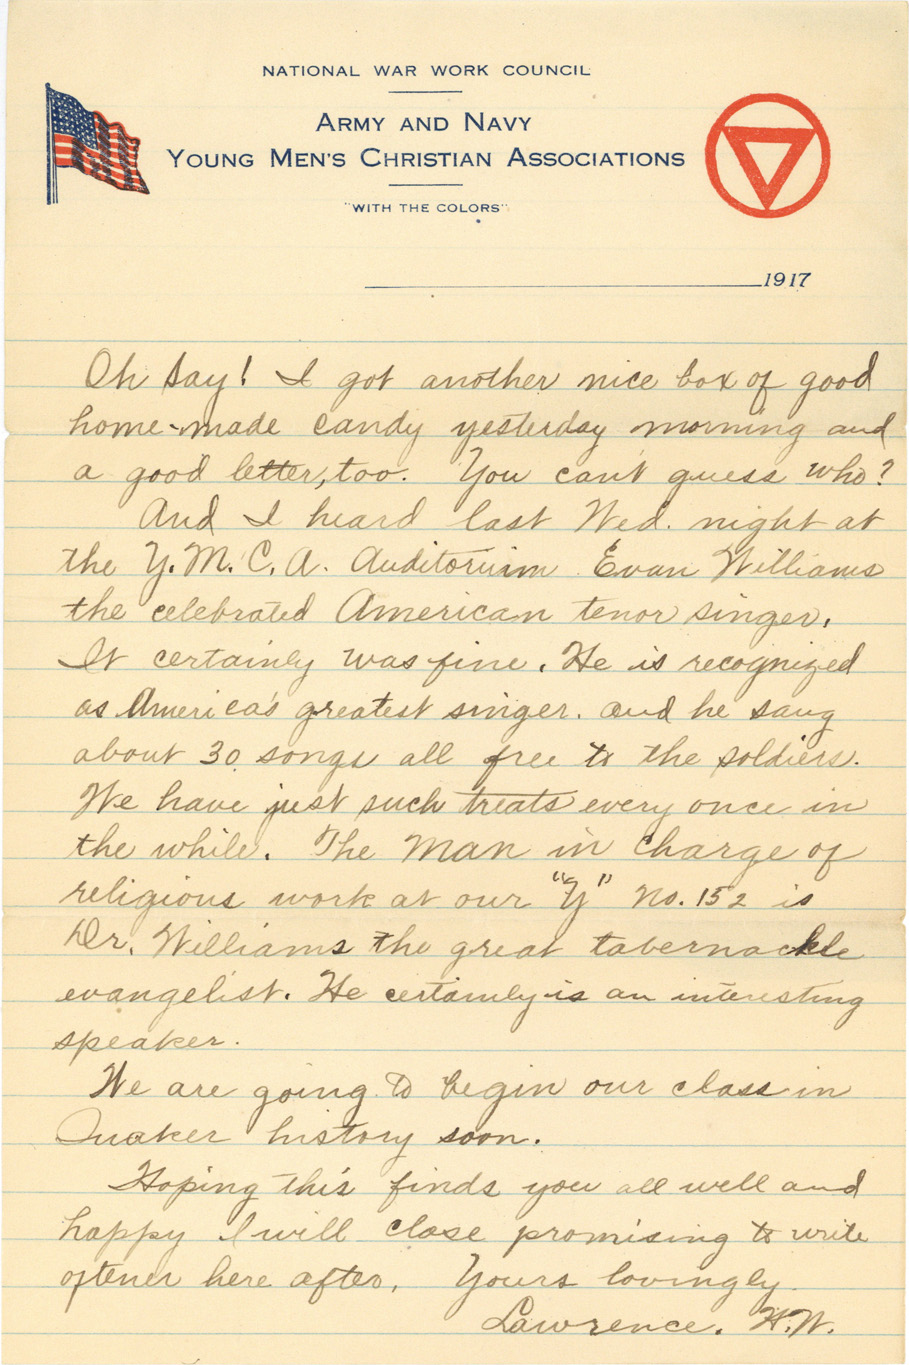 NATIONAL WAR WORK COUNCIL
ARMY AND NAVY
YOUNG MEN'S CHRISTIAN ASSOCIATIONS
"WITH THE COLORS"
1917
Oh Say! I got another nice box of good
home-made candy yesterday morning and
a good letter, too. You can't guess who?
And I heard last Wed. night at
the Y.M.C.A. Auditorium Evan Williams
the celebrated American tenor singer.
It certainly was fine. He is recognized
as America's greatest singer. and he sang
about 30 songs all free to the soldiers.
We have just such treats every once in
the while. The Man in Charge of
religious work at our "Y" No. 152 is
Dr. Williams the great tabernackle
evangelist. He certainly is an interesting
speaker.
We are going to begin our class in
Quaker history soon.
Hoping this finds you all well and
happy I will close promising to write
oftener here after. Yours lovingly
Lawrence. H.W.